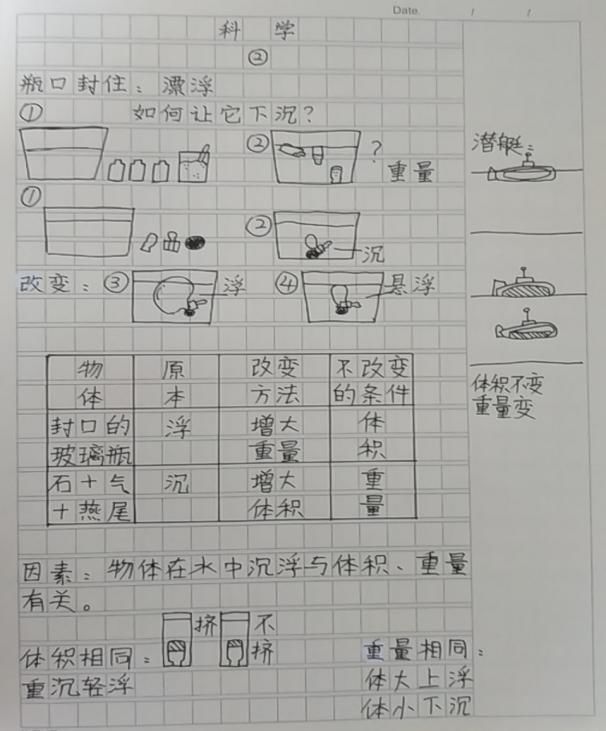 Date.      /      /
科 学
②
瓶口封住：漂浮
① 如何让它下沉？
② ？
重量
潜艇：
①
② 沉
改变：③ 浮 ④ 悬浮
物体 原本 改变方法 不改变的条件
封口的玻璃瓶 浮 增大重量 体积
石＋气＋燕尾 沉 增大体积 重量
体积不变
重量变
因素：物体在水中沉浮与体积、重量
有关。
挤 不挤
体积相同：
重沉轻浮
重量相同：
体大上浮
体小下沉